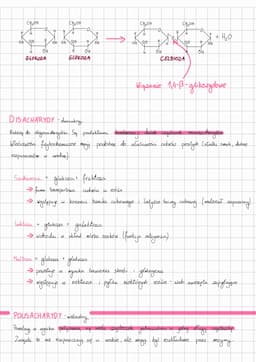 CH₂OH CH₂OH CH₂OH CH₂OH
+ H₂O
GLUKOZA GLUKOZA CELOBIOZA
Wiązanie 1,4-β-glikozydowe
DISACHARYDY - dwucukry
Należą do oligosacharydów. Są produktami kondensacji dwóch cząsteczek monosacharydów
Właściwości fizykochemiczne mają podobne do właściwości cukrów prostych (słodki smak, dobrze
rozpuszczalne w wodzie)
Sacharoza = glukoza + fruktoza
→ forma transportowa cukrów u roślin
→ występuje w korzeniu buraka cukrowego i łodydze trzciny cukrowej (materiał zapasowy)
Laktoza = glukoza + galaktoza
→ wchodzi w skład mleka ssaków (funkcja odżywcza)
Maltoza = glukoza + glukoza
→ powstaje w wyniku trawienia skrobi i glikogenu
→ występuje w nektarze i pyłku niektórych roślin - wabi zwierzęta zapylające
POLISACHARYDY - wielocukry
Powstają w wyniku połączenia się wielu cząsteczek
Zwykle te nie rozpuszczają się w wodzie, ale mogą być rozkładane przez enzymy.